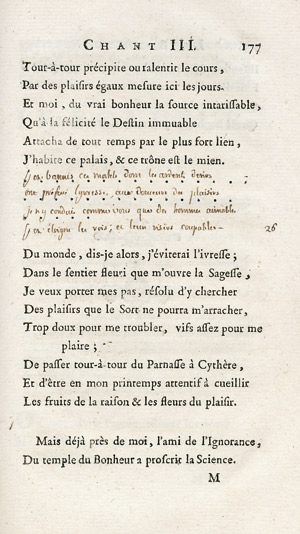 CHANT III. 177
Tour-à-tour précipite ou ralentit le cours,
Par des plaisirs égaux mesure ici les jours.
Et moi, du vrai bonheur la source intarissable,
Qu'à la félicité le Destin immuable
Attacha de tout temps par le plus fort lien,
J'habite ce palais, & ce trône est le mien.
j'en bannis ces mortels dont les ardents desirs
ont préféré l'yvresse aux douceurs du plaisirs
je n'y conduis que des hommes
j'en éloigne les rois, et leur coupables
26
Du monde, dis-je alors, j'éviterai l'ivresse;
Dans le sentier fleuri que m'ouvre la Sagesse,
Je veux porter mes pas, résolu d'y chercher
Des plaisirs que le Sort ne pourra m'arracher,
Trop doux pour me troubler, vifs assez pour me
plaire;
De passer tour-à-tour du Parnasse à Cythère,
Et d'être en mon printemps attentif à cueillir
Les fruits de la raison & les fleurs du plaisir.
Mais déjà près de moi, l'ami de l'Ignorance,
Du temple du Bonheur a proscrit la Science.
M